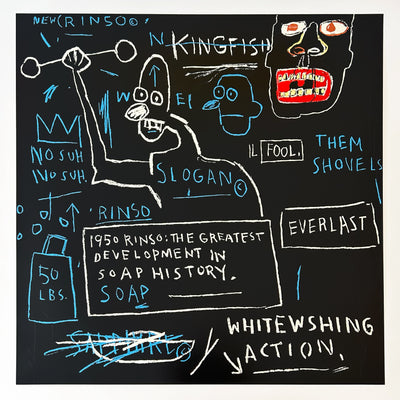 NEW (RINSO©
N KINGFISH
W EI
IL FOOL.
THEM
SHOVELS
NO SUH.
NO SUH.
SLOGAN ©
RINSO
EVERLAST
1950 RINSO: THE GREATEST
DEVELOPMENT IN
SOAP HISTORY.
SOAP
50
LBS.
WHITEWSHING
ACTION.
SAPPHIRE ©